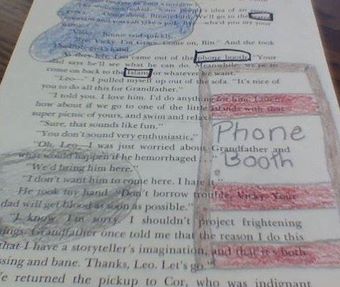 idea of an
We'll go to the
who'd you say your
Vicky." Bonnie said quickly.
Come on, Bin." And she took
phone booth. "Your
and says he'll see what he can do. Meanwhile, we're to
come on back to the island or whatever he want."
"Leo—" I pulled myself up out of the sofa. "It's nice of
you to do all this for Grandfather."
"I told you. I love him. I'd do anything for him.
how about if we go to one of the little islands with that
super picnic of yours, and swim and relax
"Sure, that sounds like fun."
"You don't sound very enthusiastic."
"Oh, Leo, I was just worried about Grandfather and
what would happen if he hemorrhaged
"We'd bring him here."
"I don't want him to come here. I hate it
He took my hand. "Don't borrow trouble, Vicky. Your
dad will get blood as soon as possible."
"I know. I'm sorry. I shouldn't project frightening
things. Grandfather once told me that the reason I do this
that I have a storyteller's imagination, and that it's both
ssing and bane. Thanks, Leo. Let's go."
e returned the pickup to Cor, who was indignant
Phone
Booth